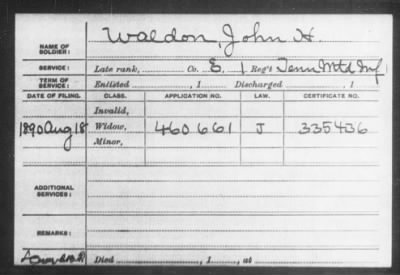 NAME OF SOLDIER: Waldon, John H
SERVICE: Late rank, Co. E, 1 Reg't Tenn Mtd Inf
TERM OF SERVICE: Enlisted , 1 Discharged , 1
DATE OF FILING. CLASS. APPLICATION NO. LAW. CERTIFICATE NO.
Invalid,
1890 Aug 18 Widow, 460661 J 335436
Minor,
ADDITIONAL SERVICES:
REMARKS:
Died , 1 , at